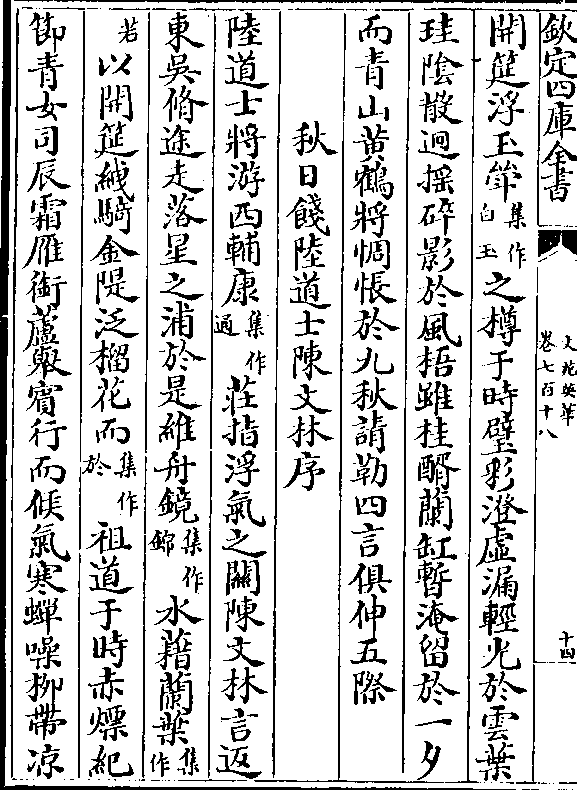 欽定四庫全書
文苑英華
卷七百十八
十四
開筵浮玉斝集作白玉之樽于時璧彩澄虚漏輕光於雲葉
珪陰散迥揺碎影於風梧雖桂醑蘭缸暫淹留於一夕
而青山黄鶴將惆悵於九秋請勒四言俱伸五際
秋日餞陸道士陳文林序
陸道士將游西輔康集作通莊指浮氣之關陳文林言返
東吳脩途走落星之浦於是維舟鏡集作錦水藉蘭葉集作
若以開筵絏騎金隄泛榴花而集作於祖道于時赤熛紀
節青女司辰霜雁銜蘆舉賓行而候氣寒蟬噪柳帶凉